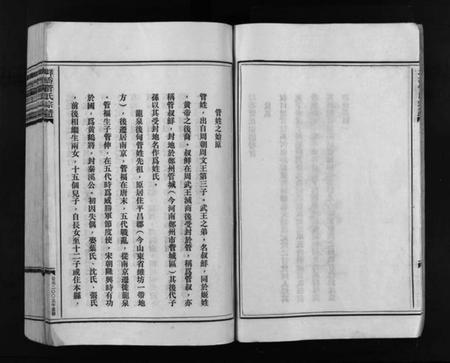 管姓之始原
管姓，出自周朝周文王第三子。武王之弟，名叔鮮，同於姬姓
，黄帝之後裔，叔鮮在周武王滅商後受封於管，稱爲管叔，亦
稱管叔鮮，封地於鄭州管城（今河南鄭州市管城區）其後代子
孫以其受封地名作爲姓氏。
龍泉後甸管姓先祖，原居住平昌郡（今山東省濰坊一帶地
方），後遷居南京，管福在唐末，五代戰亂，從南京遷徙龍泉
。管福生子管伸，在五代時爲威勝軍節度使，宋朝隆興時有功
於國，爲黄鶴將，封秦溪公。初因失偶，娶葉氏、沈氏、張氏
，前後相繼生兩女，十五個兒子，自長女至十二子咸住本縣，
管氏宗譜